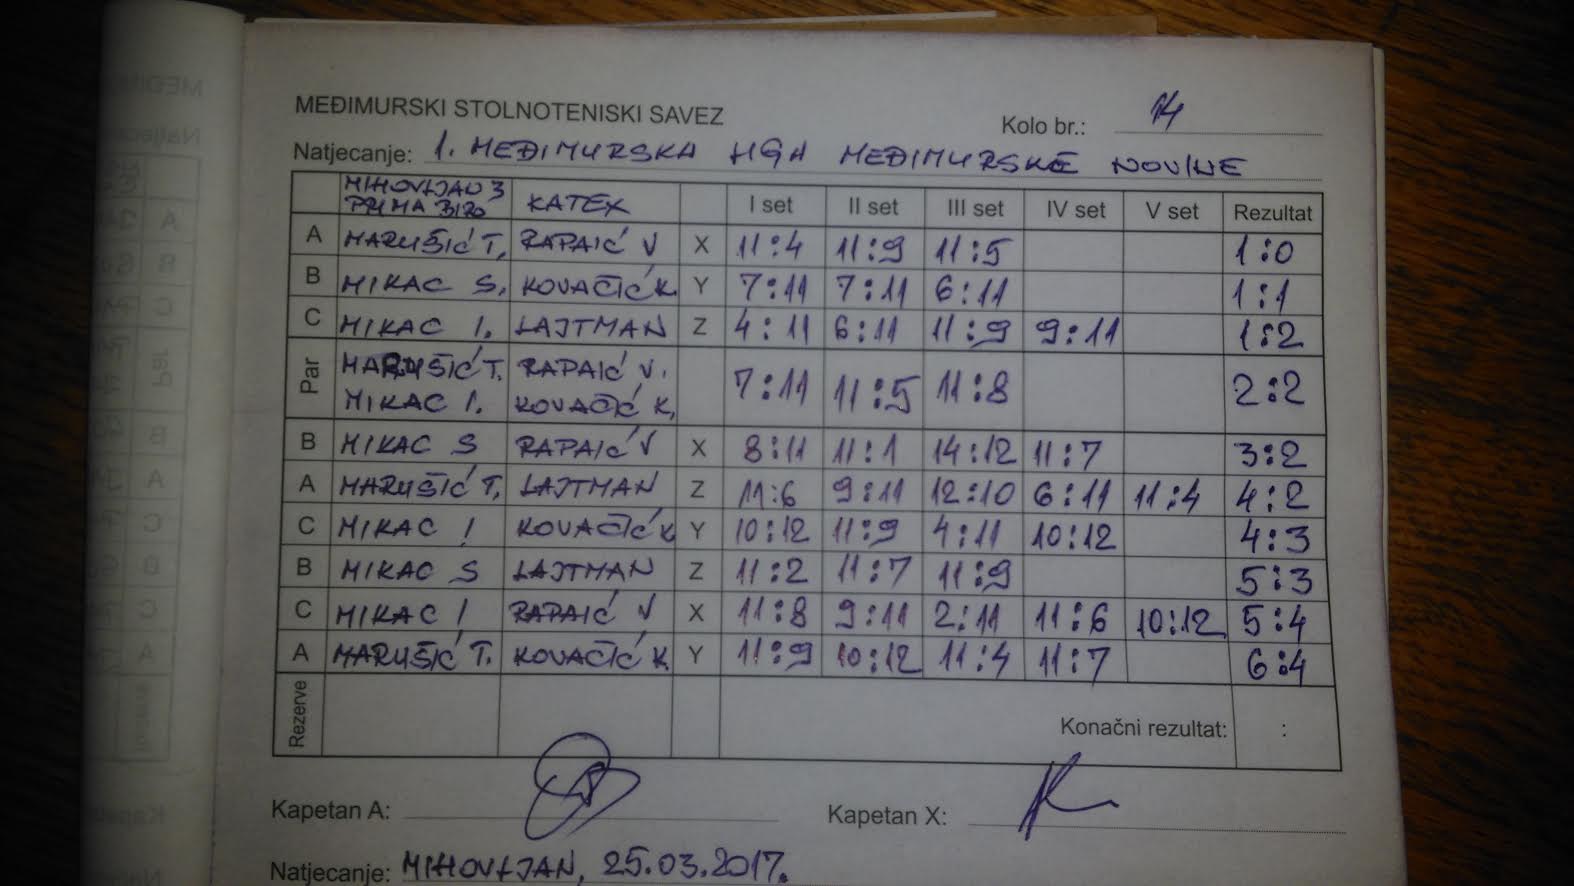 MEĐIMURSKI STOLNOTENISKI SAVEZ
Kolo br.: 14
Natjecanje: 1. MEĐIMURSKA LIGA MEĐIMURSKE NOVINE
MIHOVLJAN 3 PRIMA BIRO KATEX I set II set III set IV set V set Rezultat
A MARUŠIĆ T, RAPAIĆ V X 11:4 11:9 11:5 1:0
B MIKAC S, KOVAČIĆ K Y 7:11 7:11 6:11 1:1
C MIKAC I. LAJTMAN Z 4:11 6:11 11:9 9:11 1:2
Par MARUŠIĆ T. RAPAIĆ V. 7:11 11:5 11:8 2:2
MIKAC I. KOVAČIĆ K,
B MIKAC S RAPAIĆ V X 8:11 11:1 14:12 11:7 3:2
A MARUŠIĆ T, LAJTMAN Z 11:6 9:11 12:10 6:11 11:4 4:2
C MIKAC I KOVAČIĆ K Y 10:12 11:9 4:11 10:12 4:3
B MIKAC S LAJTMAN Z 11:2 11:7 11:9 5:3
C MIKAC I RAPAIĆ V X 11:8 9:11 2:11 11:6 10:12 5:4
A MARUŠIĆ T. KOVAČIĆ K Y 11:9 10:12 11:4 11:7 6:4
Rezerve Konačni rezultat: :
Kapetan A: Kapetan X:
Natjecanje: MIHOVLJAN, 25.03.2017.